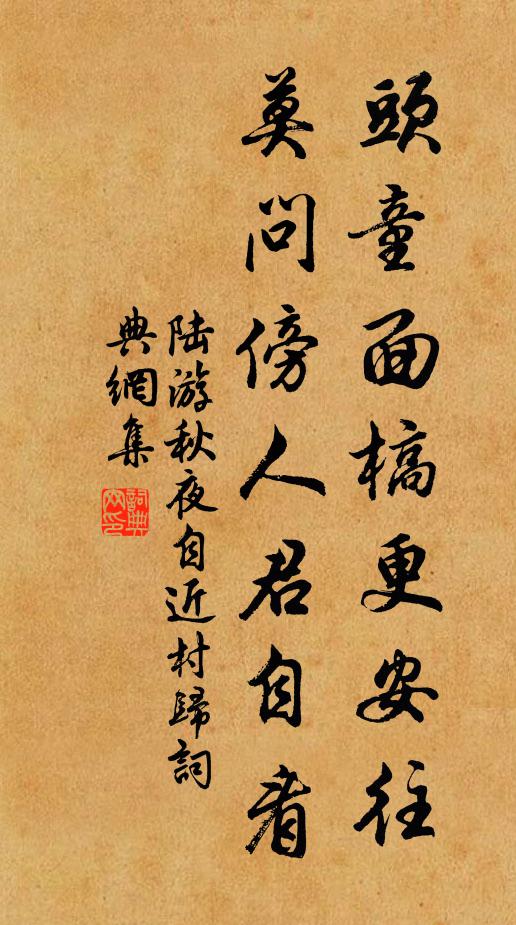 頭童面槁更安往
莫問傍人君自看
陸游秋夜自近村歸詞
典網集
詞典
网印